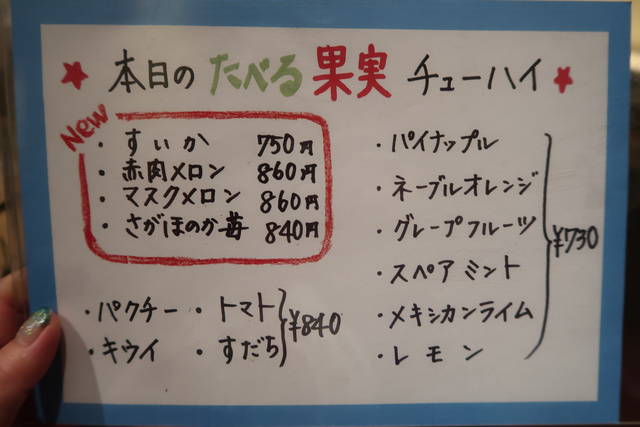 ★ 本日の たべる 果実 チューハイ ★
New
・ すいか 750円
・ 赤肉メロン 860円
・ マスクメロン 860円
・ さがほのか苺 840円
・パクチー ・トマト
・キウイ ・すだち
¥840
・パイナップル
・ネーブルオレンジ
・グレープフルーツ
・スペアミント
・メキシカンライム
・レモン
¥730